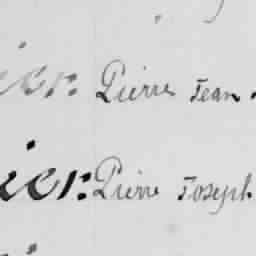 ier. Pierre Jean.
ier. Pierre Joseph